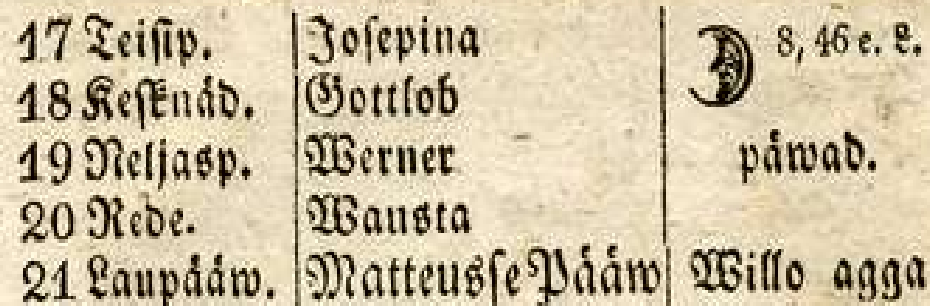 17 Teisip. Josepina 8, 46 e. L.
18 Kesknäd. Gottlob
19 Neljasp. Werner päwad.
20 Rede. Wansta
21 Laupääw. Matteusse Pääw Willo agga